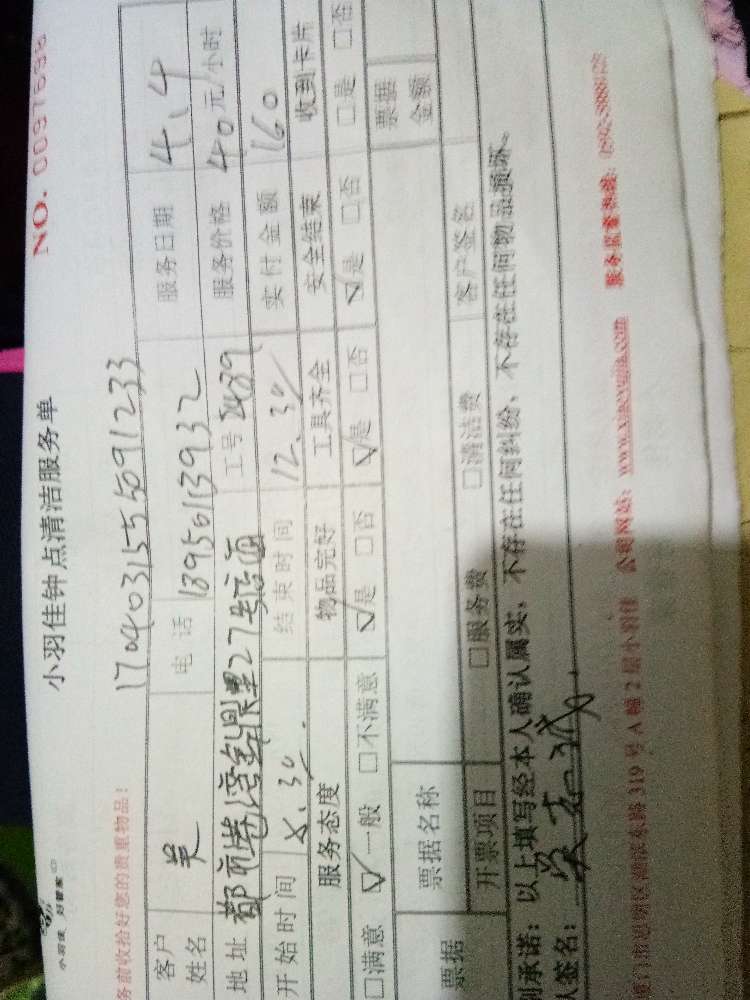 小羽佳 好管家
小羽佳钟点清洁服务单
NO. 0097698
务前收拾好您的贵重物品!
1704031555091233
客户姓名 吴 电话 13950113932 服务日期 4.4
地址 都市港湾金鼎里27号 工号 服务价格 40元/小时
开始时间 8.30 结束时间 12.30 实付金额 160
服务态度 物品完好 工具齐全 安全结束 收到卡片
□满意 ☑一般 □不满意 ☑是 □否 ☑是 □否 ☑是 □否 □是 □否
票据 票据名称 票据金额
开票项目 □服务费 □清洁费 客户签名
承诺:以上填写经本人确认属实,不存在任何纠纷、不存在任何物品损坏。
签名:
厦门市思明区湖滨东路 319 号 A 幢 2 层小羽佳 公司网站: www.xiaoyujia.com 服务监督热线: